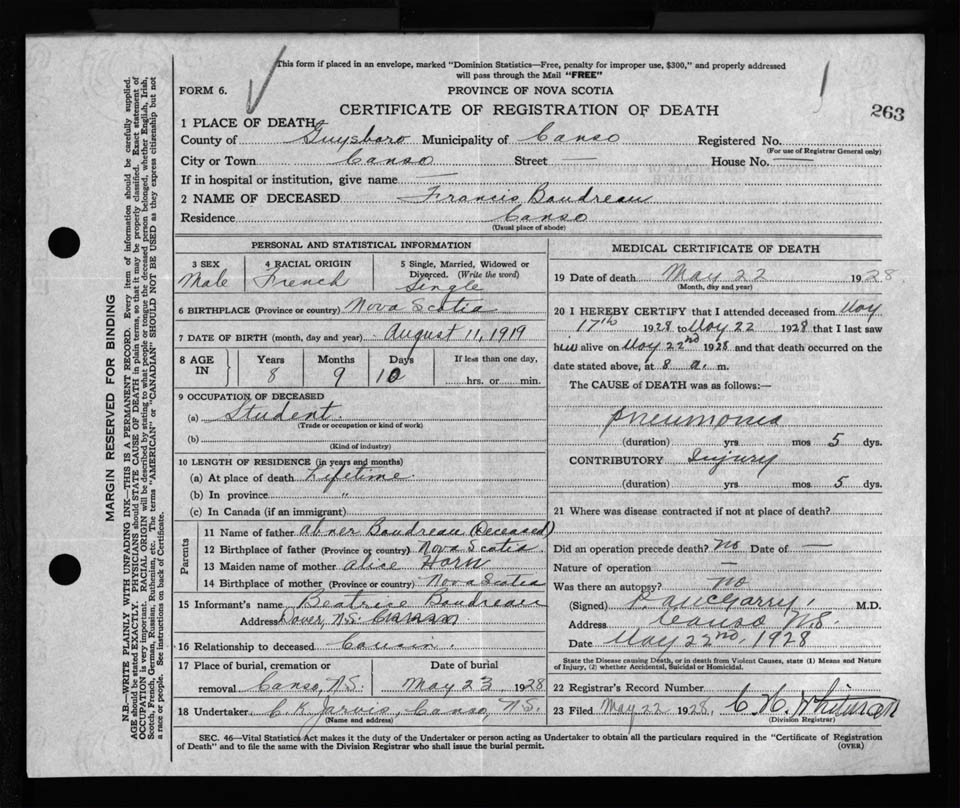 This form if placed in an envelope, marked "Dominion Statistics—Free, penalty for improper use, $300," and properly addressed
will pass through the Mail "FREE"
FORM 6. PROVINCE OF NOVA SCOTIA
CERTIFICATE OF REGISTRATION OF DEATH 263
1 PLACE OF DEATH
County of Guysboro Municipality of Canso Registered No.
(For use of Registrar General only)
City or Town Canso Street — House No. —
If in hospital or institution, give name —
2 NAME OF DECEASED Francis Boudreau
Residence Canso
(Usual place of abode)
PERSONAL AND STATISTICAL INFORMATION
3 SEX 4 RACIAL ORIGIN 5 Single, Married, Widowed or
Divorced. (Write the word)
Male French Single
6 BIRTHPLACE (Province or country) Nova Scotia
7 DATE OF BIRTH (month, day and year) August 11, 1919
8 AGE IN Years Months Days If less than one day,
8 9 10 hrs. or min.
9 OCCUPATION OF DECEASED
(a) Student.
(Trade or occupation or kind of work)
(b)
(Kind of industry)
10 LENGTH OF RESIDENCE (in years and months)
(a) At place of death Lifetime
(b) In province "
(c) In Canada (if an immigrant)
Parents
11 Name of father Abner Boudreau (Deceased)
12 Birthplace of father (Province or country) Nova Scotia.
13 Maiden name of mother Alice Horn
14 Birthplace of mother (Province or country) Nova Scotia
15 Informant's name Beatrice Boudreau
Address Dover, N.S. Canso
16 Relationship to deceased Cousin.
17 Place of burial, cremation or Date of burial
removal Canso, N.S. May 23 1928
18 Undertaker C. K. Jarvis, Canso, N.S.
(Name and address)
MEDICAL CERTIFICATE OF DEATH
19 Date of death May 22 1928
(Month, day and year)
20 I HEREBY CERTIFY that I attended deceased from May
17th 1928 to May 22 1928 that I last saw
him alive on May 22nd 1928 and that death occurred on the
date stated above, at 8 a. m.
The CAUSE of DEATH was as follows:—
Pneumonia
(duration) yrs mos 5 dys.
CONTRIBUTORY Injury
(duration) yrs mos 5 dys.
21 Where was disease contracted if not at place of death?
Did an operation precede death? no Date of —
Nature of operation —
Was there an autopsy? no
(Signed) P. A. McGarry, M.D.
Address Canso N.S.
Date May 22nd, 1928
State the Disease causing Death, or in death from Violent Causes, state (1) Means and Nature
of Injury, (2) whether Accidental, Suicidal or Homicidal.
22 Registrar's Record Number
23 Filed May 22 1928. C. H. Whitman
(Division Registrar)
SEC. 46—Vital Statistics Act makes it the duty of the Undertaker or person acting as Undertaker to obtain all the particulars required in the "Certificate of Registration
of Death" and to file the same with the Division Registrar who shall issue the burial permit. (OVER)
MARGIN RESERVED FOR BINDING
N.B.—WRITE PLAINLY WITH UNFADING INK—THIS IS A PERMANENT RECORD. Every item of information should be carefully supplied.
AGE should be stated EXACTLY. PHYSICIANS should STATE CAUSE OF DEATH in plain terms, so that it may be properly classified. Exact statement of
OCCUPATION is very important. RACIAL ORIGIN will be described by stating to what people or tongue the deceased person belonged, whether English, Irish,
Scotch, French, German, Russian, Ruthenian, etc. The terms "AMERICAN" or "CANADIAN" SHOULD NOT BE USED as they express citizenship but not
a race or people. See instructions on back of Certificate.